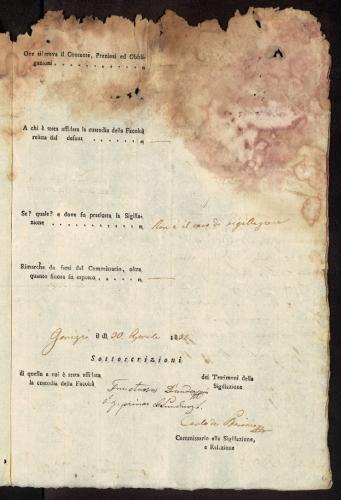 Ove si trova il Contante, Preziosi ed Obbli-
gazioni . . . . . . . . . . .
A chi è stata affidata la custodia della Facoltà
relitta dal defont . . . . . . . .
Se? quale? e dove fu praticata la Sigilla-
zione . . . . . . . . . . . Non è il caso di sigillazione
Rimarche da farsi dal Commissario, oltre
quanto finora fu esposto . . . . . .
il dì 30 Aprile 18
Sottoscrizioni
di quello a cui è stata affidata
la custodia della Facoltà
dei Testimoni della
Sigillazione
Carlo de
Commissario alla Sigillazione,
e Relazione